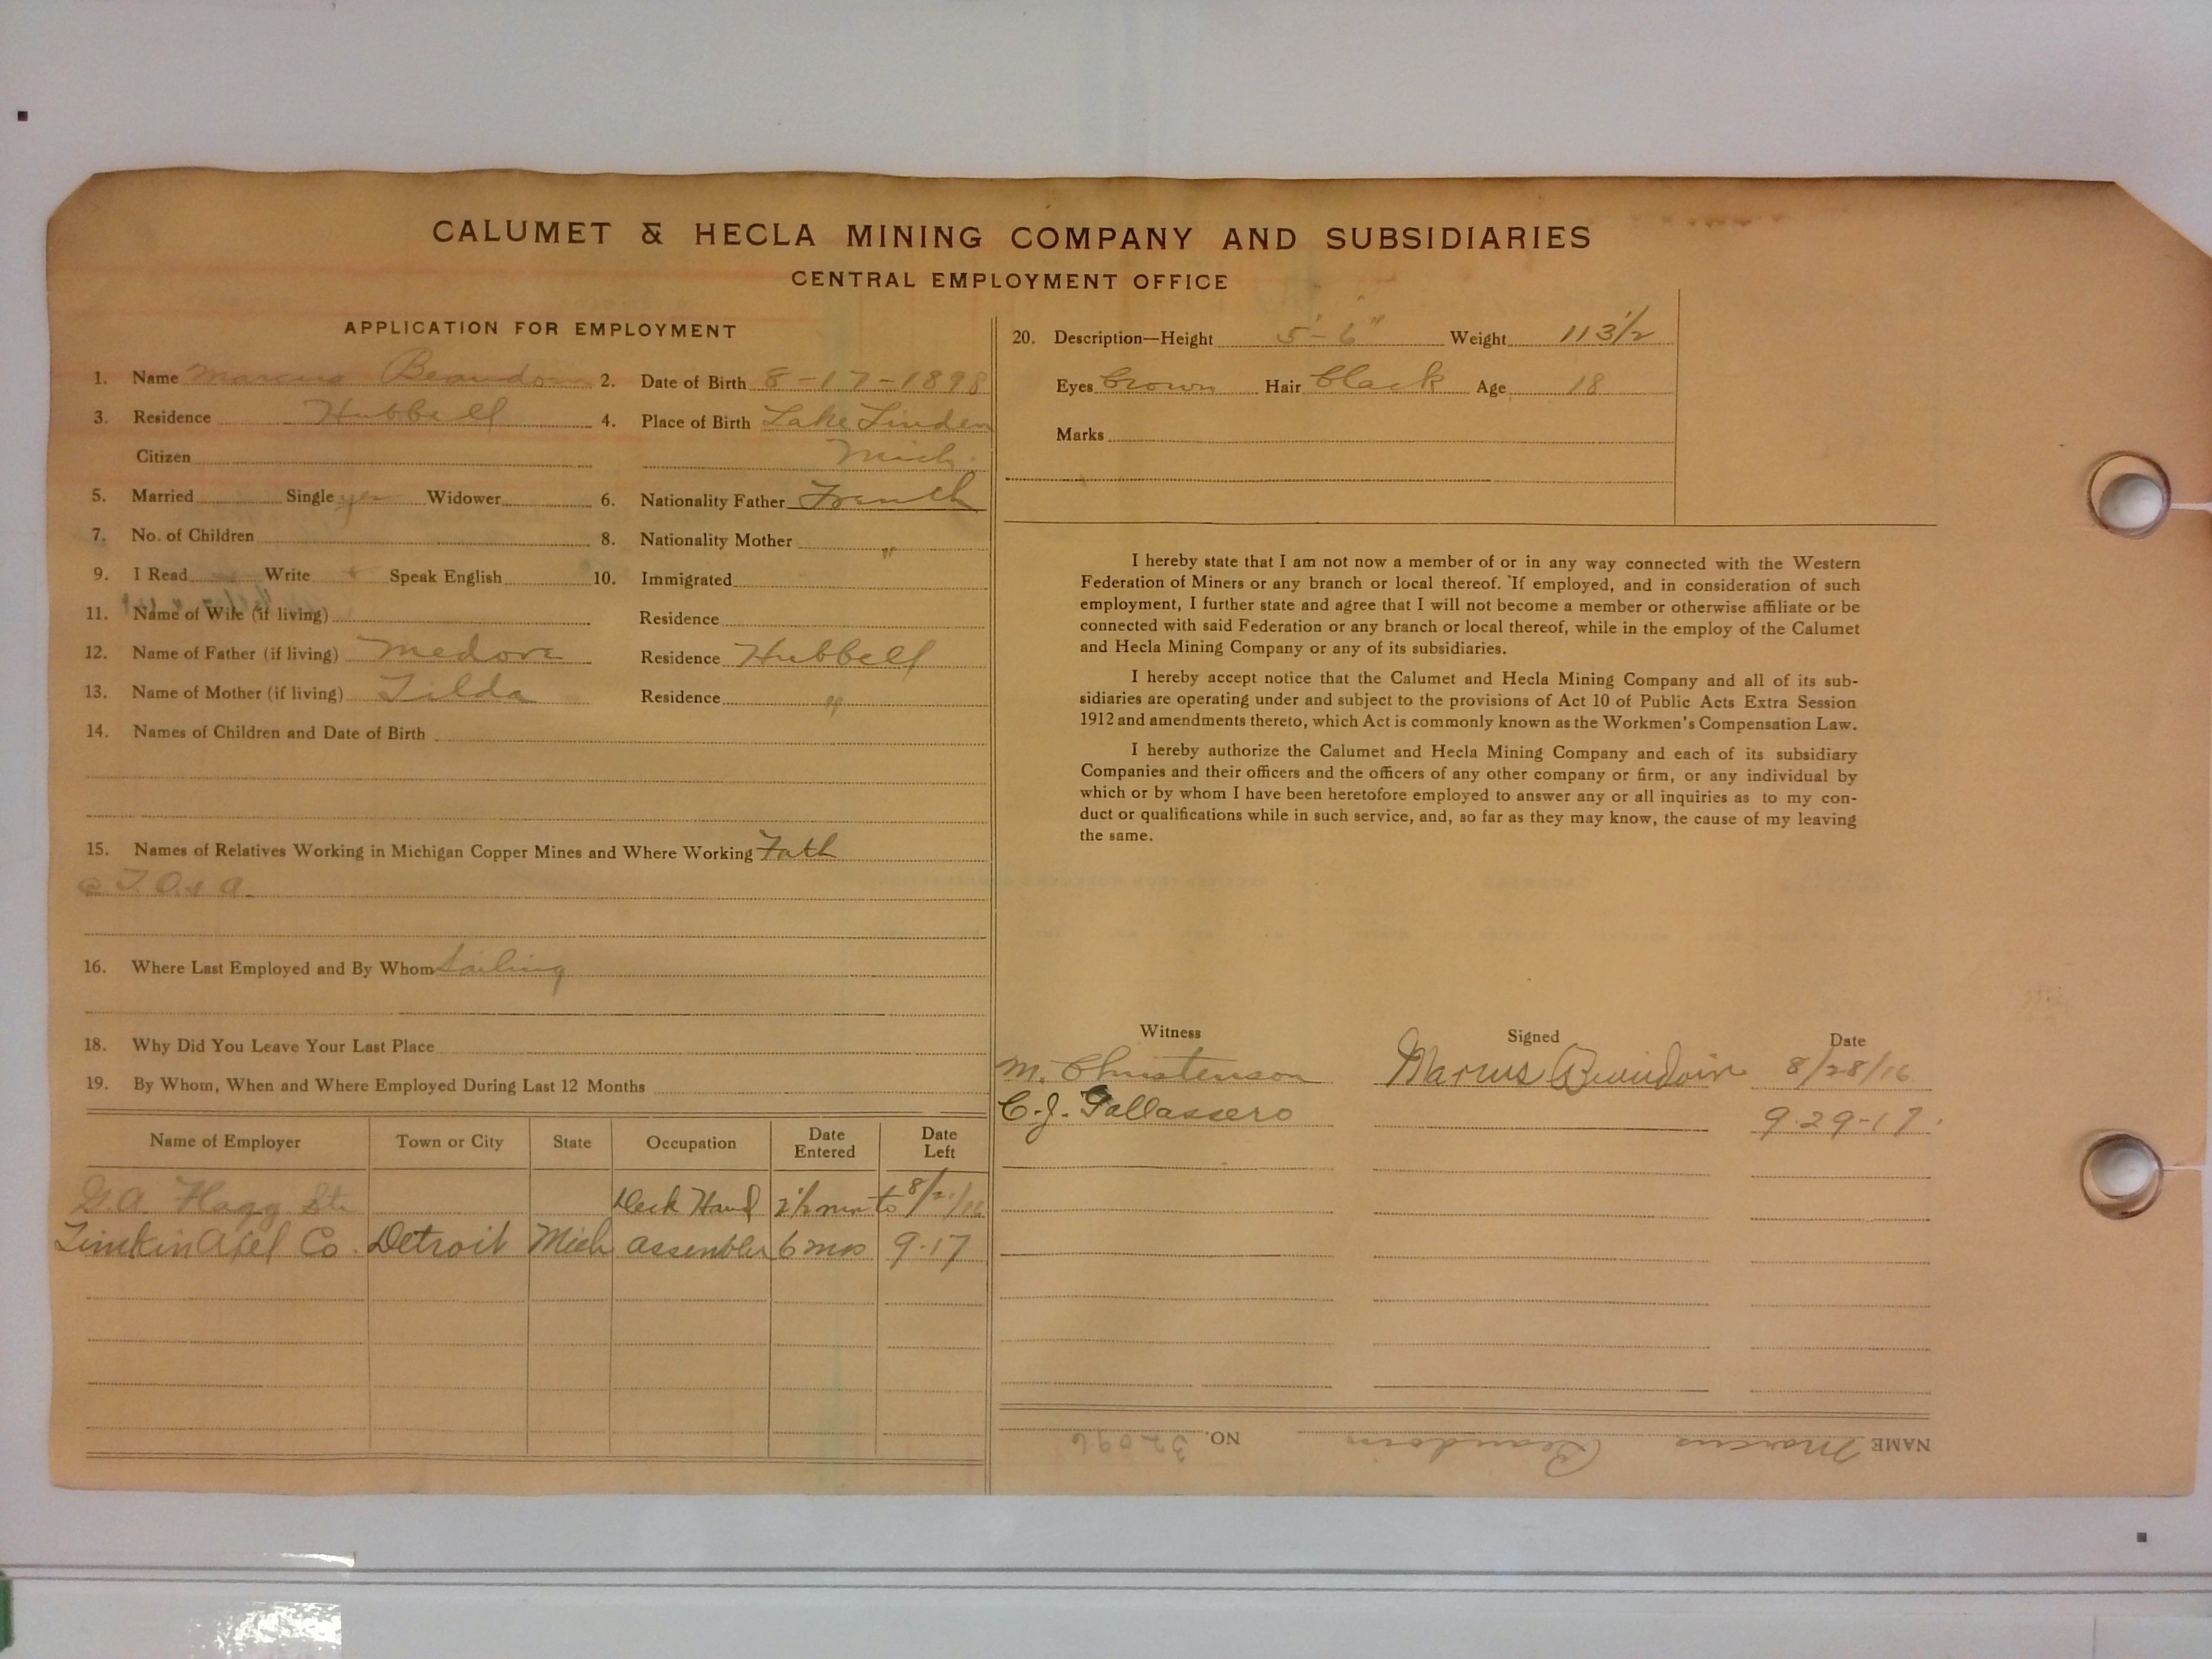 CALUMET & HECLA MINING COMPANY AND SUBSIDIARIES
CENTRAL EMPLOYMENT OFFICE
APPLICATION FOR EMPLOYMENT
1. Name Marcus Beaudoin 2. Date of Birth 8-17-1898
3. Residence Hubbell 4. Place of Birth Lake Linden
Citizen Mich.
5. Married Single yes Widower 6. Nationality Father French
7. No. of Children 8. Nationality Mother "
9. I Read Write Speak English 10. Immigrated
11. Name of Wife (if living) Residence
12. Name of Father (if living) Medore Residence Hubbell
13. Name of Mother (if living) Tilda Residence "
14. Names of Children and Date of Birth
15. Names of Relatives Working in Michigan Copper Mines and Where Working Fath
@ T. O. & A.
16. Where Last Employed and By Whom Sailing
18. Why Did You Leave Your Last Place
19. By Whom, When and Where Employed During Last 12 Months
Name of Employer Town or City State Occupation Date Entered Date Left
G.A. Flagg Str. Deck Hand 2 1/2 mos to 8/2 /16
Timkin Axel Co. Detroit Mich assembler 6 mos 9-17
20. Description—Height 5'-6" Weight 113 1/2
Eyes brown Hair black Age 18
Marks
I hereby state that I am not now a member of or in any way connected with the Western
Federation of Miners or any branch or local thereof. If employed, and in consideration of such
employment, I further state and agree that I will not become a member or otherwise affiliate or be
connected with said Federation or any branch or local thereof, while in the employ of the Calumet
and Hecla Mining Company or any of its subsidiaries.
I hereby accept notice that the Calumet and Hecla Mining Company and all of its sub-
sidiaries are operating under and subject to the provisions of Act 10 of Public Acts Extra Session
1912 and amendments thereto, which Act is commonly known as the Workmen's Compensation Law.
I hereby authorize the Calumet and Hecla Mining Company and each of its subsidiary
Companies and their officers and the officers of any other company or firm, or any individual by
which or by whom I have been heretofore employed to answer any or all inquiries as to my con-
duct or qualifications while in such service, and, so far as they may know, the cause of my leaving
the same.
Witness Signed Date
M. Christenson Marcus Beaudoin 8/28/16
C. J. Gallassero 9-29-17.
NAME Marcus Beaudoin NO. 32096